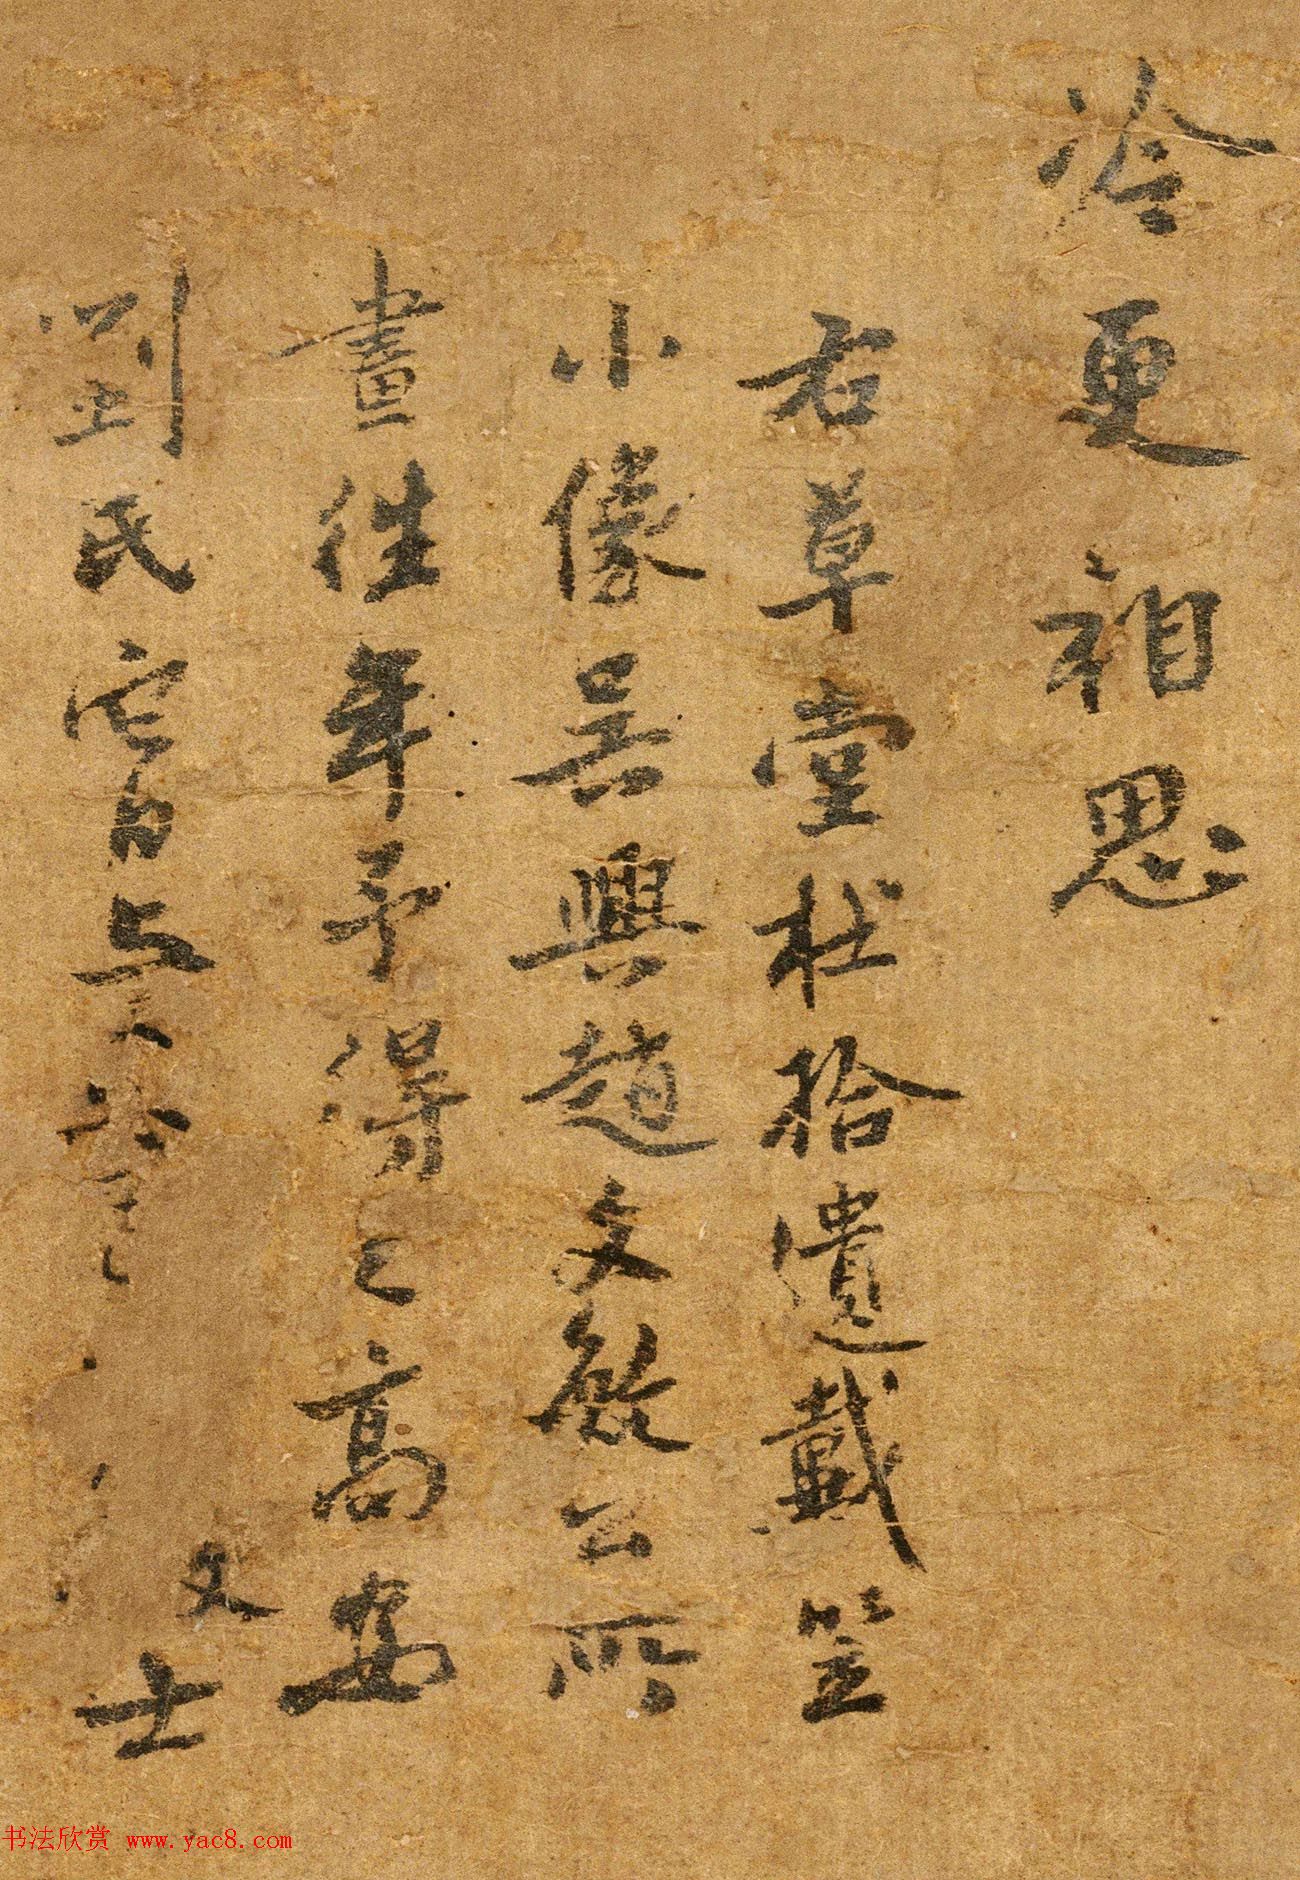 冷更相思
右草堂杜拾遺戴笠
小像吳興趙文敏公所
畫往年予得之高安
劉氏它日與
文
士
书法欣赏 www.yac8.com